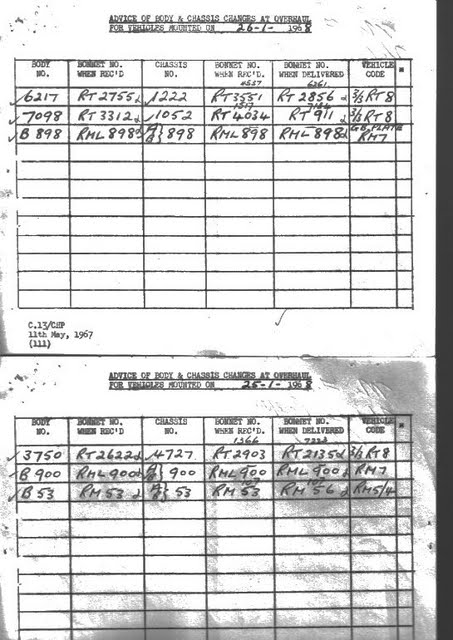 ADVICE OF BODY & CHASSIS CHANGES AT OVERHAUL
FOR VEHICLES MOUNTED ON 26-1- 1968
BODY NO. BONNET NO. WHEN REC'D CHASSIS NO. BONNET NO. WHEN REC'D. BONNET NO. WHEN DELIVERED VEHICLE CODE *
4537 6261
✓6217 RT2755 ✓1222 RT3551 RT2856 3/3 RT8
1517 7186
✓7098 RT3312 ✓1052 RT4034 RT911 3/3 RT8
GB PLATE
✓B898 RML898 A/B} 898 RML898 RML898 RM7
C.13/CHP
11th May, 1967
(111)
ADVICE OF BODY & CHASSIS CHANGES AT OVERHAUL
FOR VEHICLES MOUNTED ON 25-1- 1968
BODY NO. BONNET NO. WHEN REC'D CHASSIS NO. BONNET NO. WHEN REC'D. BONNET NO. WHEN DELIVERED VEHICLE CODE *
1366
✓3750 RT2622 ✓4727 RT2903 RT2135 3/3 RT8
✓B900 RML900 A/B} 900 RML900 RML900 RM7
107 107
✓B53 RM53 A/B} 53 RM53 RM56 RM5/4